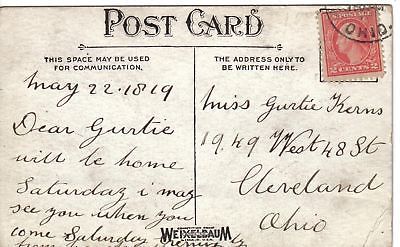 POST CARD
OHIO.
THIS SPACE MAY BE USED
FOR COMMUNICATION.
THE ADDRESS ONLY TO
BE WRITTEN HERE.
U.S. POSTAGE
2 CENTS 2
May 22. 1819
Dear Gurtie
will be home
Saturday i may
see you when you
come Saturday evening
Miss Gurtie Kerns
1949 West 48 St
Cleveland
Ohio
WEIXELBAUM